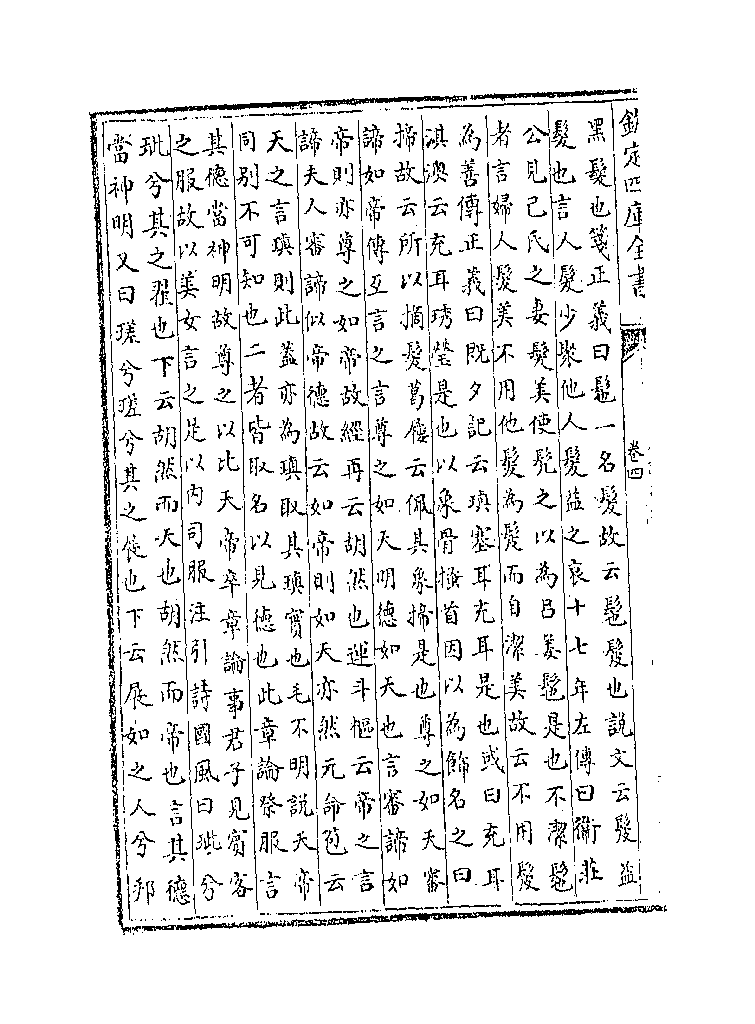 欽定四庫全書
卷四
黑髮也箋正義曰髢一名髲故云髢髲也說文云髲益
髮也言人髮少聚他人髮益之哀十七年左傳曰衛莊
公見己氏之妻髮美使髡之以為呂姜髢是也不潔髢
者言婦人髮美不用他髮為髲而自潔美故云不用髲
為善傳正義曰既夕記云瑱塞耳充耳是也或曰充耳
淇澳云充耳琇瑩是也以象骨搔首因以為飾名之曰
揥故云所以摘髮葛屨云佩其象揥是也尊之如天審
諦如帝傳互言之言尊之如天明德如天也言審諦如
帝則亦尊之如帝故經再云胡然也運斗樞云帝之言
諦夫人審諦似帝德故云如帝則如天亦然元命苞云
天之言瑱則此蓋亦為瑱取其瑱實也毛不明說天帝
同別不可知也二者皆取名以見德也此章論祭服言
其德當神明故尊之以比天帝卒章論事君子見賓客
之服故以美女言之是以內司服注引詩國風曰玼兮
玼兮其之翟也下云胡然而天也胡然而帝也言其德
當神明又曰瑳兮瑳兮其之展也下云展如之人兮邦